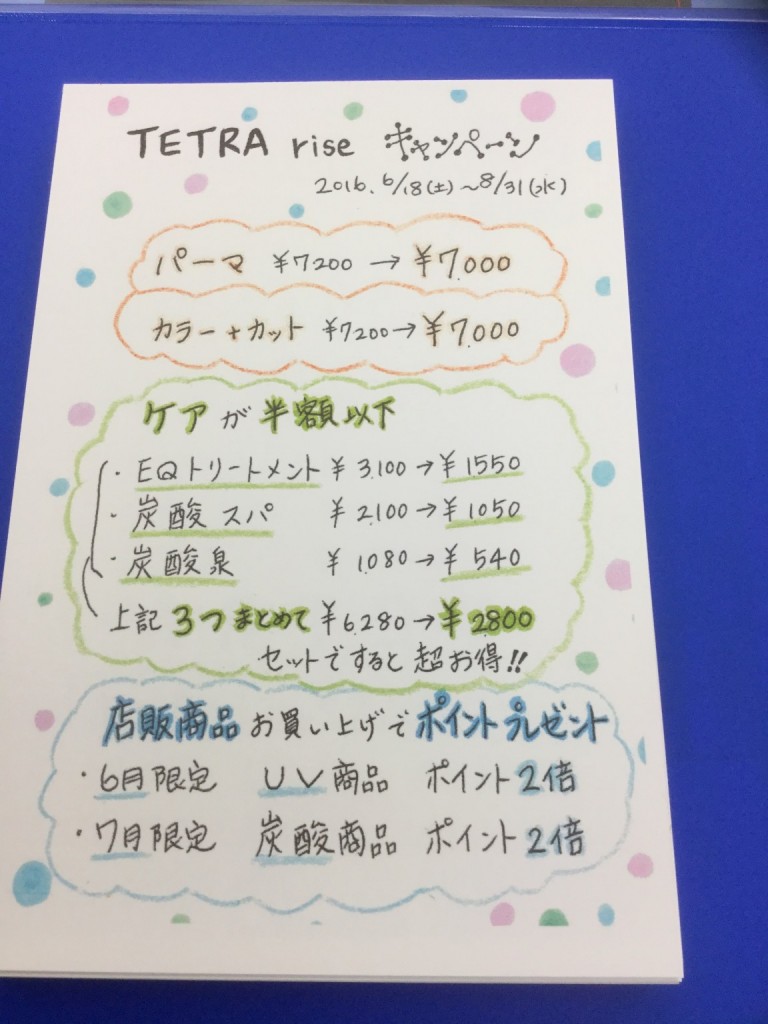 TETRA rise キャンペーン
2016. 6/18(土)〜8/31(水)
パーマ ¥7200 → ¥7.000
カラー+カット ¥7200→¥7.000
ケアが半額以下
・EQトリートメント ¥3.100→¥1550
・炭酸スパ ¥2.100→¥1050
・炭酸泉 ¥1.080→¥540
上記3つまとめて¥6.280→¥2800
セットですると超お得!!
店販商品お買い上げでポイントプレゼント
・6月限定 UV商品 ポイント2倍
・7月限定 炭酸商品 ポイント2倍